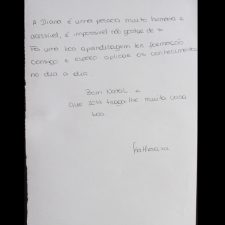 A Diana é uma pessoa muito humana e
acessível, é impossível não gostar de
Foi uma boa aprendizagem ter formação
consigo e espero aplicar os conhecimentos
no dia a dia.
Bom Natal e
que 2014 traga-lhe muita coisa
boa.